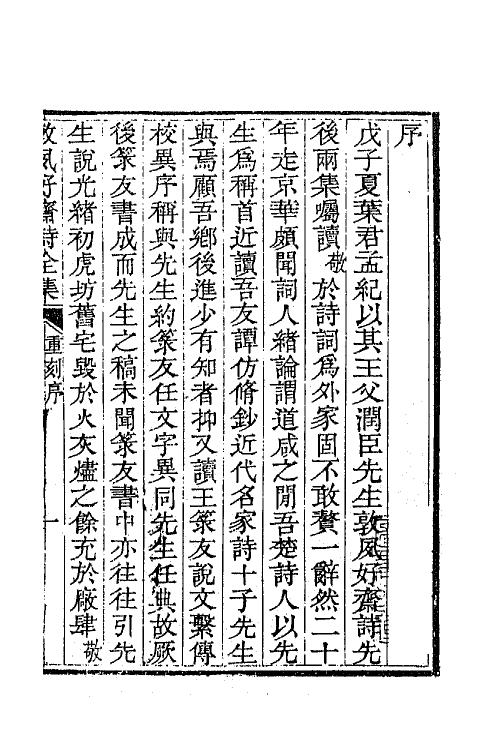 序
戊子夏葉君孟紀以其王父潤臣先生敦夙好齋詩先
後兩集囑讀敬於詩詞爲外家固不敢贅一辭然二十
年走京華頗聞詞人緒論謂道咸之閒吾楚詩人以先
生爲稱首近讀吾友譚仿脩鈔近代名家詩十子先生
與焉顧吾鄉後進少有知者抑又讀王箓友說文繫傳
校異序稱與先生約箓友任文字異同先生任典故厥
後箓友書成而先生之稿未聞箓友書中亦往往引先
生說光緒初虎坊舊宅毀於火灰燼之餘充於廠肆敬
敦夙好齋詩全集
重刻序
一